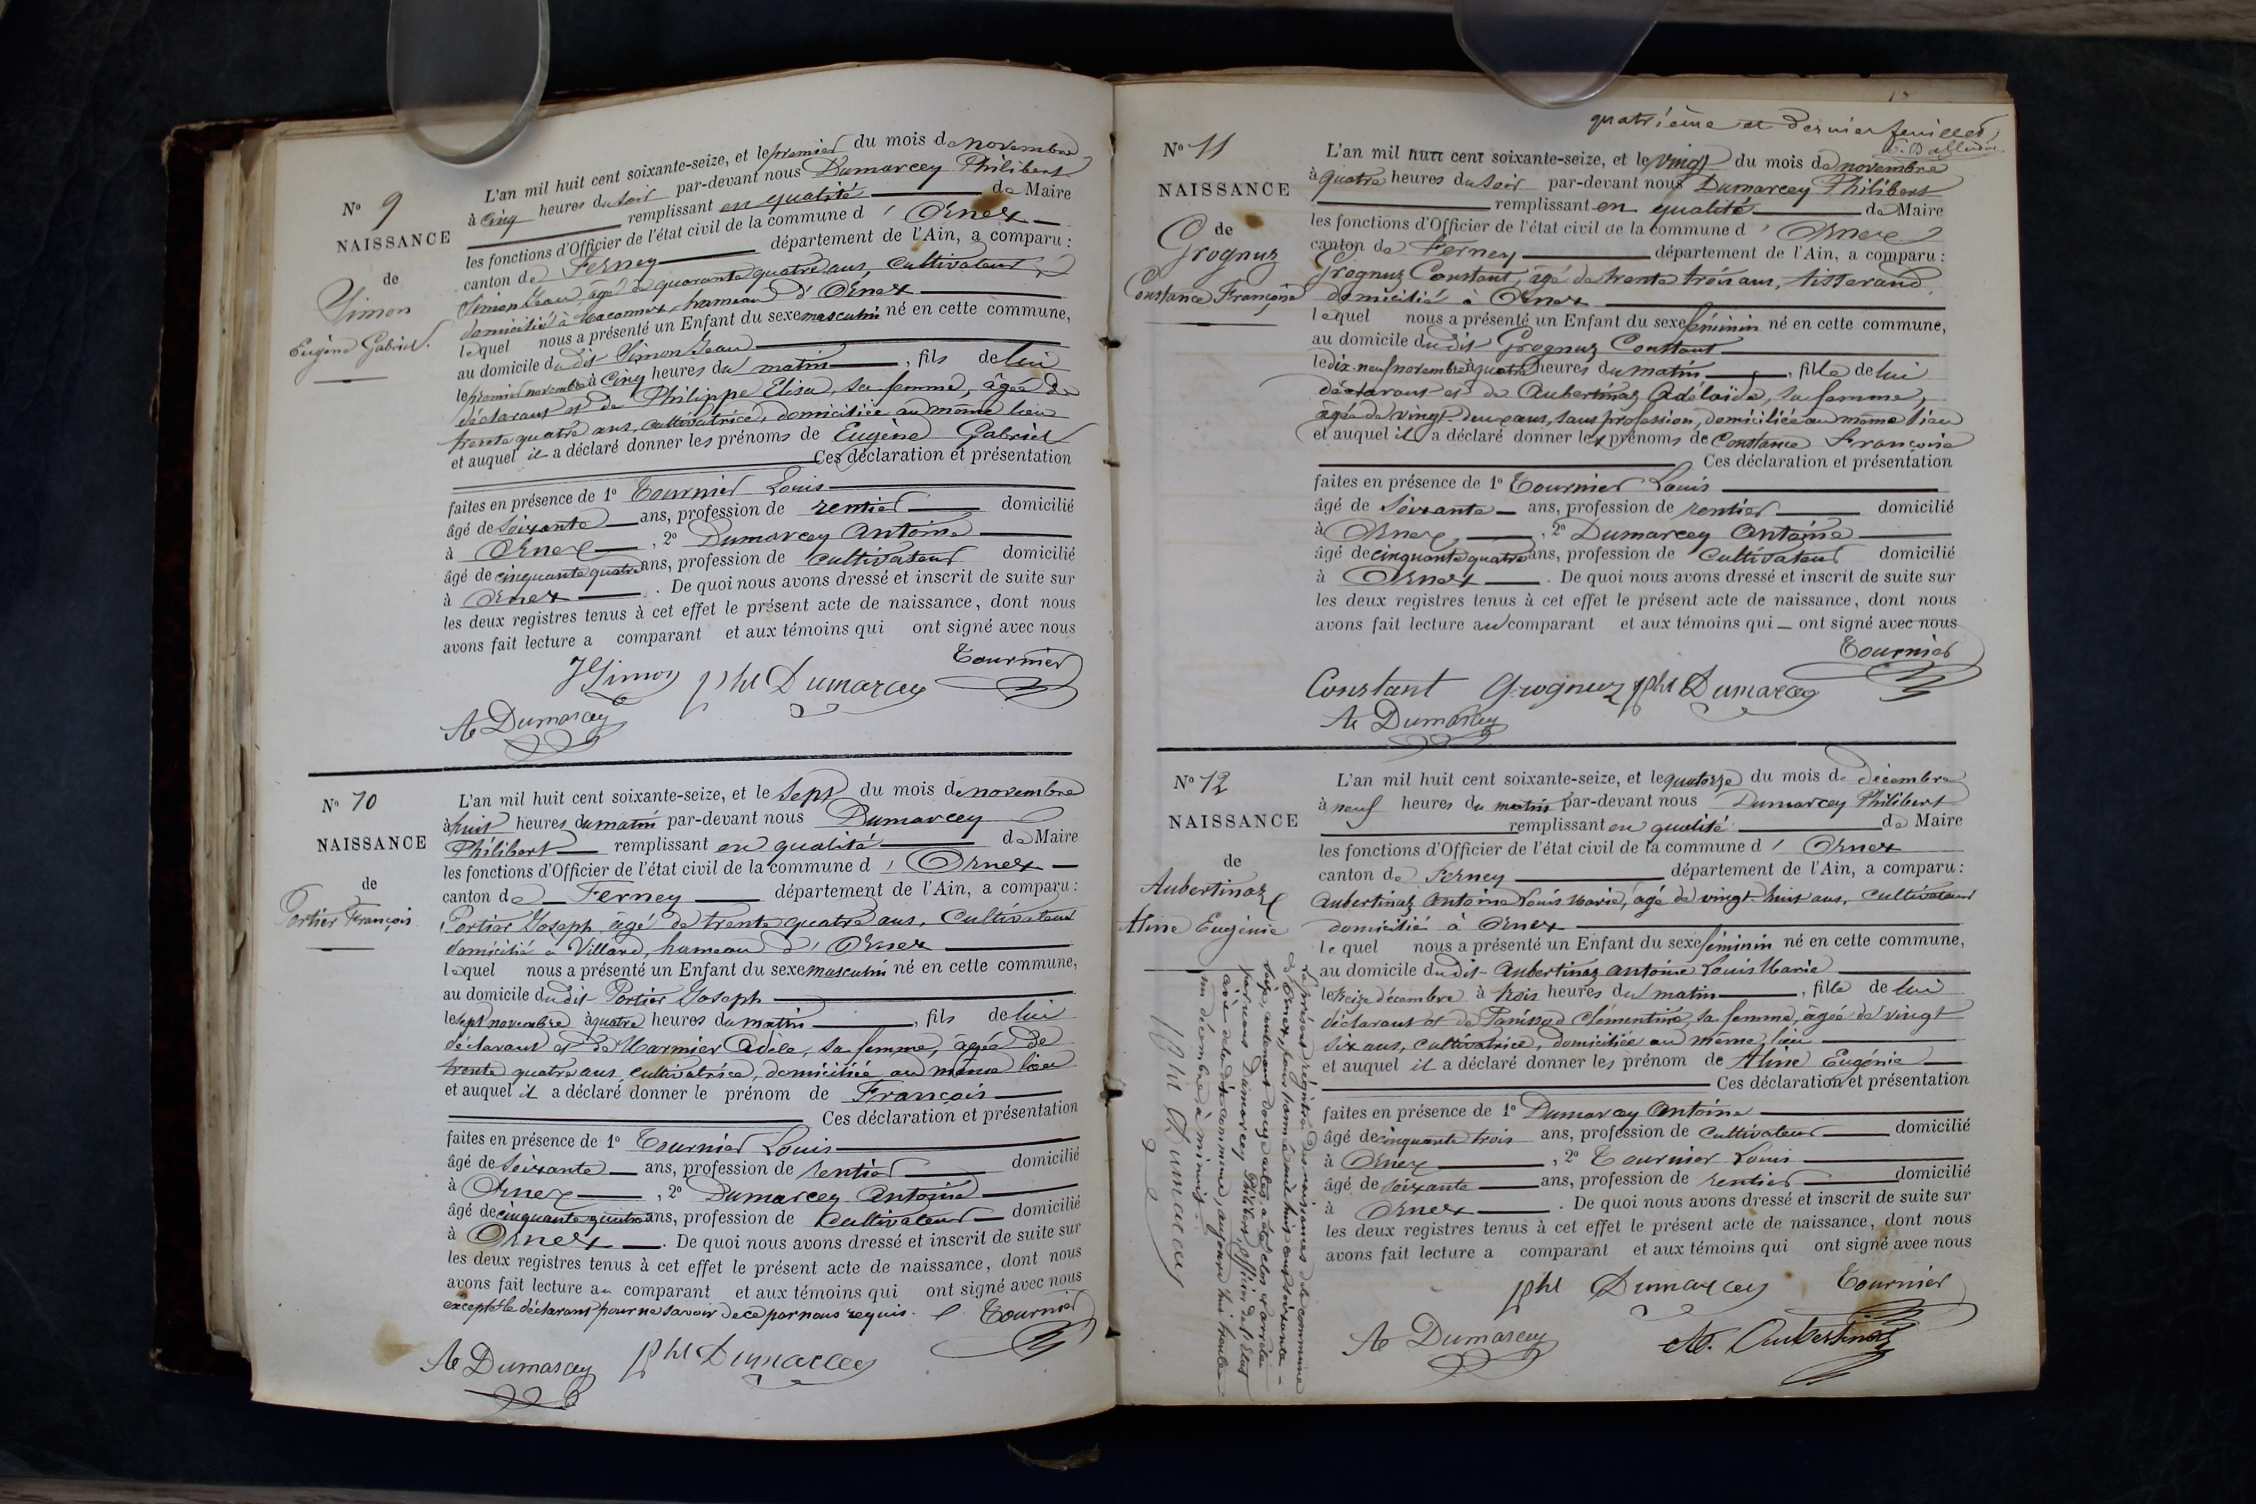 N° 9
NAISSANCE
de
Simon
Eugène Gabriel.
L'an mil huit cent soixante-seize, et le premier du mois de novembre
à cinq heures du soir par-devant nous Dumarcey Philibert
remplissant en qualité de Maire
les fonctions d'Officier de l'état civil de la commune d' Ornex
canton de Ferney département de l'Ain, a comparu :
Simon Jean, âgé de quarante quatre ans, cultivateur,
domicilié à Maconnex, hameau d'Ornex
lequel nous a présenté un Enfant du sexe masculin né en cette commune,
au domicile du dit Simon Jean
le premier novembre à cinq heures du matin, fils de lui
déclarant et de Philippe Elisa, sa femme, âgée de
trente quatre ans, cultivatrice, domiciliée au même lieu
et auquel il a déclaré donner les prénoms de Eugène Gabriel
Ces déclaration et présentation
faites en présence de 1° Tournier Louis
âgé de soixante ans, profession de rentier domicilié
à Ornex, 2° Dumarcey Antoine
âgé de cinquante quatre ans, profession de cultivateur domicilié
à Ornex. De quoi nous avons dressé et inscrit de suite sur
les deux registres tenus à cet effet le présent acte de naissance, dont nous
avons fait lecture a comparant et aux témoins qui ont signé avec nous
Tournier
J Simon Phl Dumarcey
Ae Dumarcey
N° 10
NAISSANCE
de
Portier François
L'an mil huit cent soixante-seize, et le sept du mois de novembre
à huit heures du matin par-devant nous Dumarcey
Philibert remplissant en qualité de Maire
les fonctions d'Officier de l'état civil de la commune d' Ornex
canton de Ferney département de l'Ain, a comparu :
Portier Joseph, âgé de trente quatre ans, cultivateur
domicilié à Villard, hameau d'Ornex
lequel nous a présenté un Enfant du sexe masculin né en cette commune,
au domicile du dit Portier Joseph
le sept novembre à quatre heures du matin, fils de lui
déclarant et de Marmier Adèle, sa femme, âgée de
trente quatre ans, cultivatrice, domiciliée au même lieu
et auquel il a déclaré donner le prénom de François
Ces déclaration et présentation
faites en présence de 1° Tournier Louis
âgé de soixante ans, profession de rentier domicilié
à Ornex, 2° Dumarcey Antoine
âgé de cinquante quatre ans, profession de cultivateur domicilié
à Ornex. De quoi nous avons dressé et inscrit de suite sur
les deux registres tenus à cet effet le présent acte de naissance, dont nous
avons fait lecture au comparant et aux témoins qui ont signé avec nous
excepté le déclarant pour ne savoir de ce par nous requis. Tournier
Ae Dumarcey Phl Dumarcey
quatrième et dernier feuillet
N° 11
NAISSANCE
de
Grognuz
Constance Françoise
L'an mil huit cent soixante-seize, et le vingt du mois de novembre
à quatre heures du soir par-devant nous Dumarcey Philibert
remplissant en qualité de Maire
les fonctions d'Officier de l'état civil de la commune d' Ornex
canton de Ferney département de l'Ain, a comparu :
Grognuz Constant, âgé de trente trois ans, tisserand,
domicilié à Ornex
lequel nous a présenté un Enfant du sexe féminin né en cette commune,
au domicile du dit Grognuz Constant
le dix-neuf novembre à quatre heures du matin, fille de lui
déclarant et de Aubertinaz Adélaïde, sa femme,
âgée de vingt-deux ans, sans profession, domiciliée au même lieu
et auquel il a déclaré donner les prénoms de Constance Françoise
Ces déclaration et présentation
faites en présence de 1° Tournier Louis
âgé de soixante ans, profession de rentier domicilié
à Ornex, 2° Dumarcey Antoine
âgé de cinquante quatre ans, profession de cultivateur domicilié
à Ornex. De quoi nous avons dressé et inscrit de suite sur
les deux registres tenus à cet effet le présent acte de naissance, dont nous
avons fait lecture au comparant et aux témoins qui ont signé avec nous
Tournier
Constant Grognuz Phl Dumarcey
Ae Dumarcey
N° 12
NAISSANCE
de
Aubertinaz
Aline Eugénie
L'an mil huit cent soixante-seize, et le quatorze du mois de décembre
à neuf heures du matin par-devant nous Dumarcey Philibert
remplissant en qualité de Maire
les fonctions d'Officier de l'état civil de la commune d' Ornex
canton de Ferney département de l'Ain, a comparu :
Aubertinaz Antoine Louis Marie, âgé de vingt-huit ans, cultivateur
domicilié à Ornex
lequel nous a présenté un Enfant du sexe féminin né en cette commune,
au domicile du dit Aubertinaz Antoine Louis Marie
le treize décembre à trois heures du matin, fille de lui
déclarant et de Panissod Clémentine, sa femme, âgée de vingt
six ans, cultivatrice, domiciliée au même lieu
et auquel il a déclaré donner les prénom de Aline Eugénie
Ces déclaration et présentation
faites en présence de 1° Dumarcey Antoine
âgé de cinquante trois ans, profession de cultivateur domicilié
à Ornex, 2° Tournier Louis
âgé de soixante ans, profession de rentier domicilié
à Ornex. De quoi nous avons dressé et inscrit de suite sur
les deux registres tenus à cet effet le présent acte de naissance, dont nous
avons fait lecture a comparant et aux témoins qui ont signé avec nous
Phl Dumarcey Tournier
Ae Dumarcey A. Aubertinaz
Le présent régistre des naissances de la commune
d'Ornex, pour l'année mil huit cent soixante-
seize, contenant douze actes a été clos et arrêté
par nous Dumarcey Philibert, officier de l'état
civil de la dite commune, aujourd'hui trente-
un décembre à minuit.
Phl Dumarcey